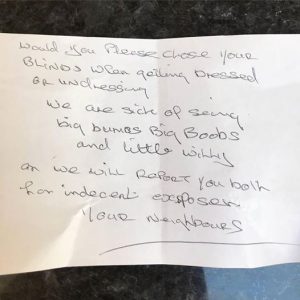 would you Please close Your
BLINDS when getting Dressed
or undressing
we are sick of seing
big bumbs Big Boobs
and little willy
or we will Report You both
for indecent exposer
Your Neighbours